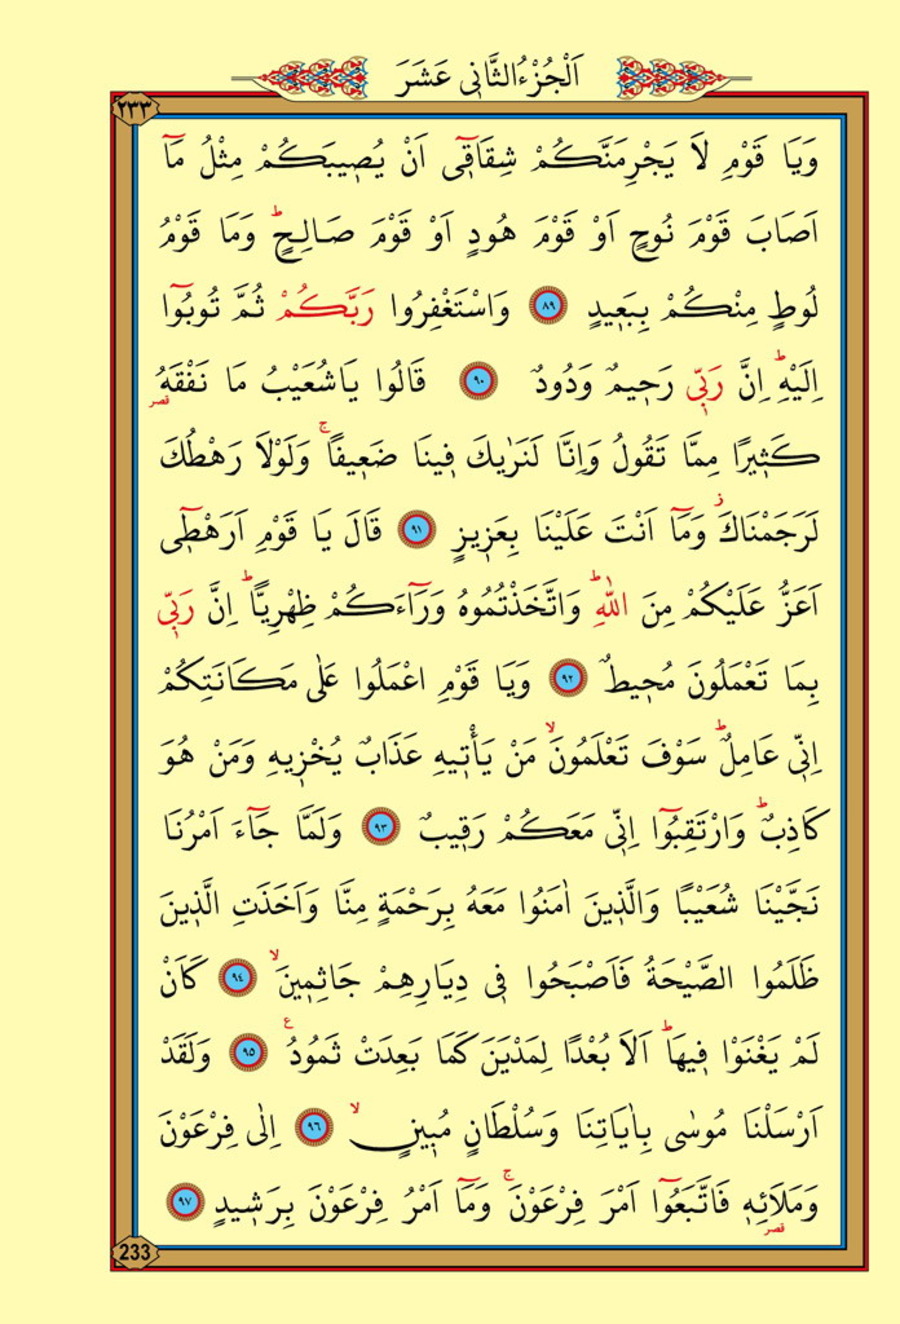 اَلْجُزْءُ الثَّانٖى عَشَرَ
٢٣٣
وَيَا قَوْمِ لَا يَجْرِمَنَّكُمْ شِقَاقٖٓى اَنْ يُصٖيبَكُمْ مِثْلُ مَٓا
اَصَابَ قَوْمَ نُوحٍ اَوْ قَوْمَ هُودٍ اَوْ قَوْمَ صَالِحٍؕ وَمَا قَوْمُ
لُوطٍ مِنْكُمْ بِبَعٖيدٍ ٨٩ وَاسْتَغْفِرُوا رَبَّكُمْ ثُمَّ تُوبُٓوا
اِلَيْهِؕ اِنَّ رَبّٖى رَحٖيمٌ وَدُودٌ ٩٠ قَالُوا يَاشُعَيْبُ مَا نَفْقَهُ
قصر
كَثٖيرًا مِمَّا تَقُولُ وَاِنَّا لَنَرٰيكَ فٖينَا ضَعٖيفًاۚ وَلَوْلَا رَهْطُكَ
لَرَجَمْنَاكَؗ وَمَٓا اَنْتَ عَلَيْنَا بِعَزٖيزٍ ٩١ قَالَ يَا قَوْمِ اَرَهْطٖٓى
اَعَزُّ عَلَيْكُمْ مِنَ اللّٰهِؕ وَاتَّخَذْتُمُوهُ وَرَٓاءَكُمْ ظِهْرِيًّاؕ اِنَّ رَبّٖى
بِمَا تَعْمَلُونَ مُحٖيطٌ ٩٢ وَيَا قَوْمِ اعْمَلُوا عَلٰى مَكَانَتِكُمْ
اِنّٖى عَامِلٌؕ سَوْفَ تَعْلَمُونَۙ مَنْ يَأْتٖيهِ عَذَابٌ يُخْزٖيهِ وَمَنْ هُوَ
كَاذِبٌؕ وَارْتَقِبُٓوا اِنّٖى مَعَكُمْ رَقٖيبٌ ٩٣ وَلَمَّا جَٓاءَ اَمْرُنَا
نَجَّيْنَا شُعَيْبًا وَالَّذٖينَ اٰمَنُوا مَعَهُ بِرَحْمَةٍ مِنَّا وَاَخَذَتِ الَّذٖينَ
ظَلَمُوا الصَّيْحَةُ فَاَصْبَحُوا فٖى دِيَارِهِمْ جَاثِمٖينَۙ ٩٤ كَاَنْ
لَمْ يَغْنَوْا فٖيهَاؕ اَلَا بُعْدًا لِمَدْيَنَ كَمَا بَعِدَتْ ثَمُودُ ع ٩٥ وَلَقَدْ
اَرْسَلْنَا مُوسٰى بِاٰيَاتِنَا وَسُلْطَانٍ مُبٖينٍۙ ٩٦ اِلٰى فِرْعَوْنَ
وَمَلَائِهٖ فَاتَّبَعُٓوا اَمْرَ فِرْعَوْنَۚ وَمَٓا اَمْرُ فِرْعَوْنَ بِرَشٖيدٍ ٩٧
قصر
233